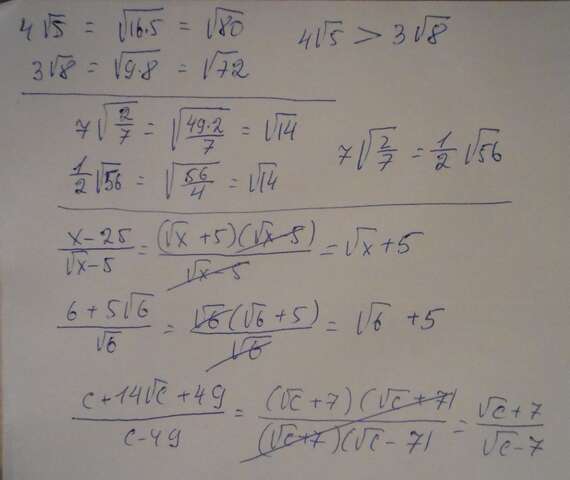 4√5 = √16·5 = √80
3√8 = √9·8 = √72
4√5 > 3√8
7√2/7 = √49·2/7 = √14
1/2√56 = √56/4 = √14
7√2/7 = 1/2√56
x-25/√x-5 = (√x+5)(√x-5)/√x-5 = √x+5
6+5√6/√6 = √6(√6+5)/√6 = √6+5
c+14√c+49/c-49 = (√c+7)(√c+7)/(√c+7)(√c-7) = √c+7/√c-7